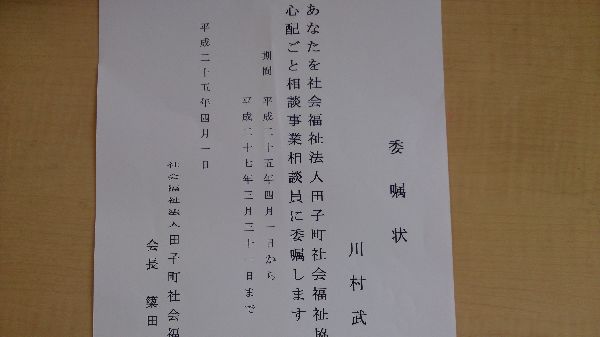 委嘱状
川村武
あなたを社会福祉法人田子町社会福祉協
心配ごと相談事業相談員に委嘱します
期間 平成二十五年四月一日から
平成二十七年三月三十一日まで
平成二十五年四月一日
社会福祉法人田子町社会福
会長 簗田